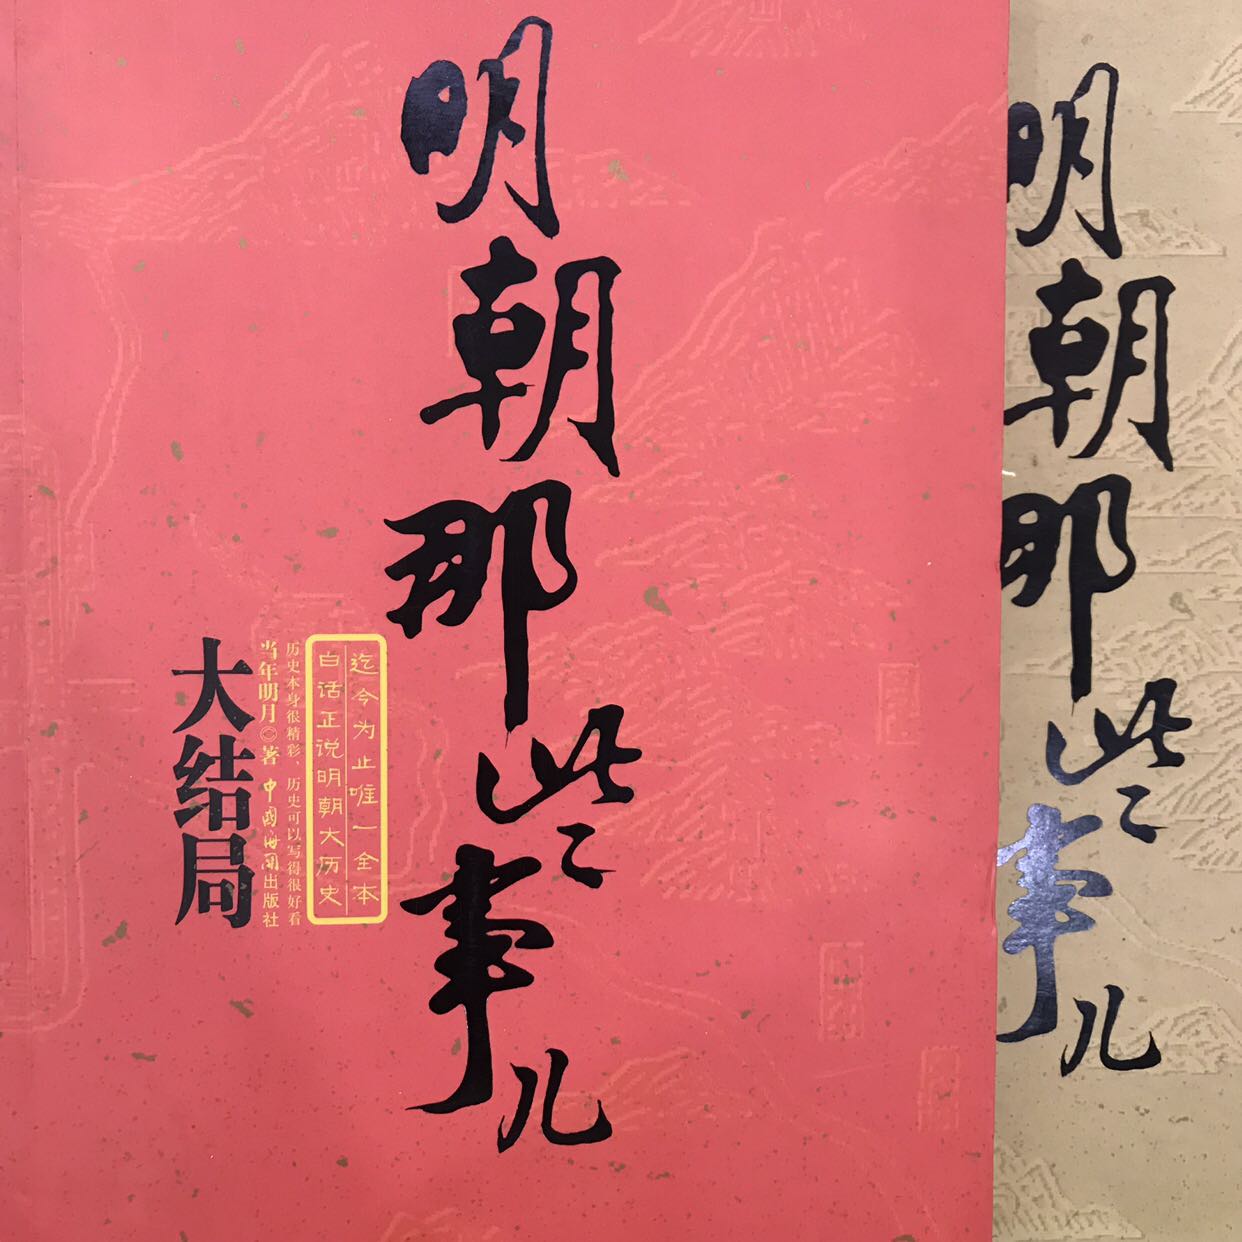 明朝那些事儿
迄今为止唯一全本
白话正说明朝大历史
历史本身很精彩，历史可以写得很好看
当年明月◎著 中国海关出版社
大结局
明朝那些事儿